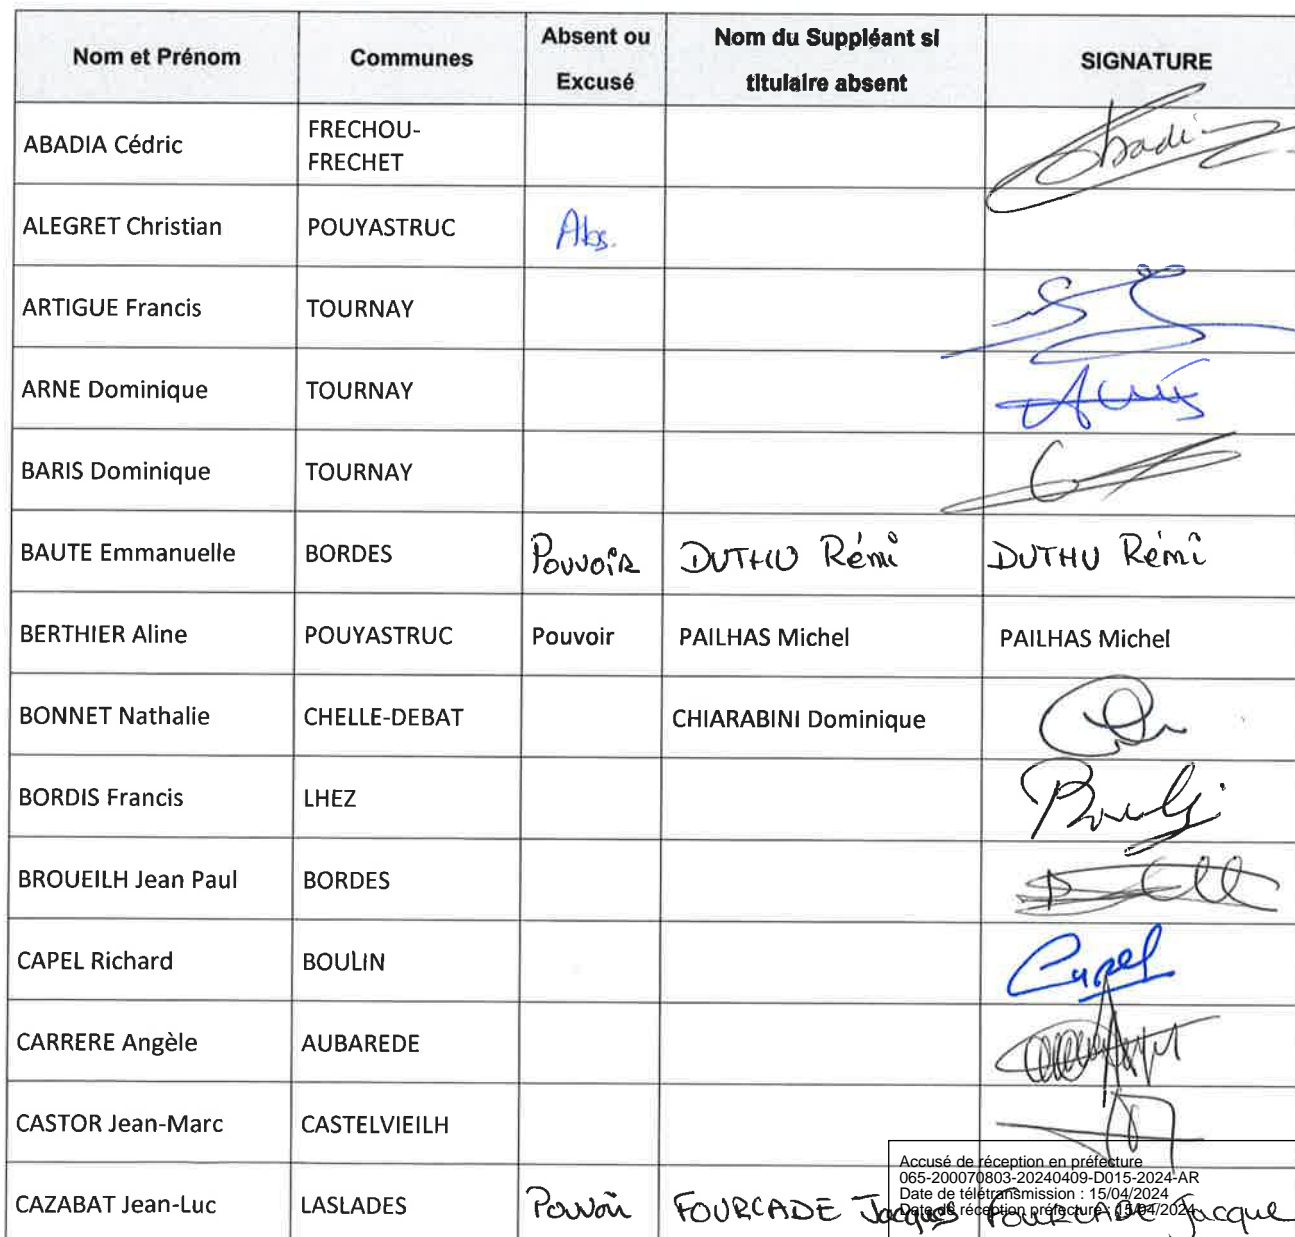 Nom et Prénom Communes Absent ou Excusé Nom du Suppléant si titulaire absent SIGNATURE
ABADIA Cédric FRECHOU-FRECHET Abadi
ALEGRET Christian POUYASTRUC Abs.
ARTIGUE Francis TOURNAY
ARNE Dominique TOURNAY
BARIS Dominique TOURNAY
BAUTE Emmanuelle BORDES Pouvoir DUTHU Rémi DUTHU Rémi
BERTHIER Aline POUYASTRUC Pouvoir PAILHAS Michel PAILHAS Michel
BONNET Nathalie CHELLE-DEBAT CHIARABINI Dominique
BORDIS Francis LHEZ
BROUEILH Jean Paul BORDES
CAPEL Richard BOULIN Capel
CARRERE Angèle AUBAREDE
CASTOR Jean-Marc CASTELVIEILH
CAZABAT Jean-Luc LASLADES Pouvoir FOURCADE Jacques FOURCADE Jacque
Accusé de réception en préfecture
065-200070803-20240409-D015-2024-AR
Date de télétransmission : 15/04/2024
Date de réception préfecture : 15/04/2024